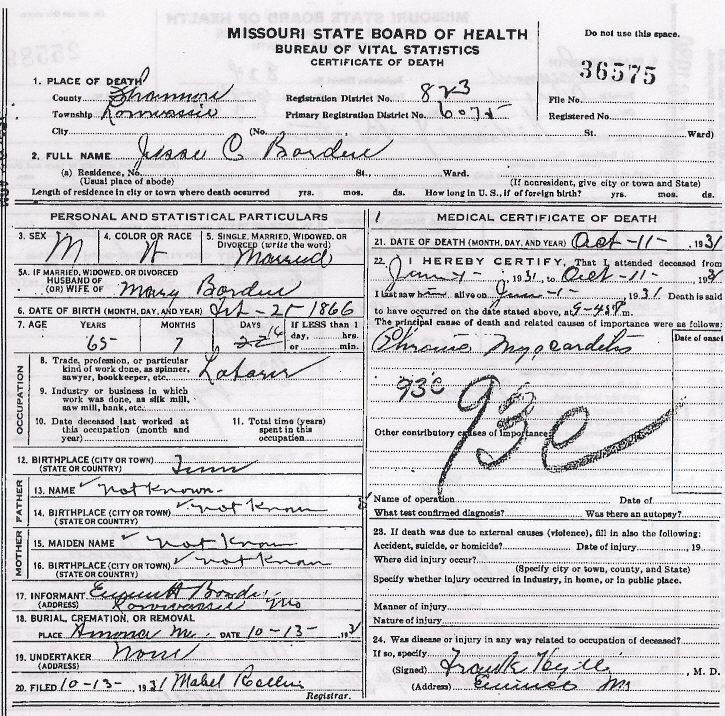 MISSOURI STATE BOARD OF HEALTH
BUREAU OF VITAL STATISTICS
CERTIFICATE OF DEATH
Do not use this space.
36575
1. PLACE OF DEATH
County Shannon Registration District No. 823 File No.
Township Primary Registration District No. 6075 Registered No.
City (No. St. Ward)
2. FULL NAME Jesse C Borders
(a) Residence, No. St. Ward.
(Usual place of abode) (If nonresident, give city or town and State)
Length of residence in city or town where death occurred yrs. mos. ds. How long in U. S., if of foreign birth? yrs. mos. ds.
PERSONAL AND STATISTICAL PARTICULARS
3. SEX M
4. COLOR OR RACE W
5. SINGLE, MARRIED, WIDOWED, OR DIVORCED (write the word) Married
5A. IF MARRIED, WIDOWED, OR DIVORCED
HUSBAND OF
(OR) WIFE OF Mary
6. DATE OF BIRTH (MONTH, DAY, AND YEAR) 1866
7. AGE YEARS MONTHS DAYS If LESS than 1
day, hrs.
or min.
65 7 16
OCCUPATION
8. Trade, profession, or particular
kind of work done, as spinner,
sawyer, bookkeeper, etc. Laborer
9. Industry or business in which
work was done, as silk mill,
saw mill, bank, etc.
10. Date deceased last worked at
this occupation (month and
year)
11. Total time (years)
spent in this
occupation
12. BIRTHPLACE (CITY OR TOWN)
(STATE OR COUNTRY) Tenn
FATHER
13. NAME not known
14. BIRTHPLACE (CITY OR TOWN) not know
(STATE OR COUNTRY)
MOTHER
15. MAIDEN NAME not know
16. BIRTHPLACE (CITY OR TOWN) not know
(STATE OR COUNTRY)
17. INFORMANT
(ADDRESS) Mo
18. BURIAL, CREMATION, OR REMOVAL
PLACE Mo. DATE 10-13- 1931
19. UNDERTAKER None
(ADDRESS)
20. FILED 10-13- 1931 Mabel Rollins
Registrar.
MEDICAL CERTIFICATE OF DEATH
21. DATE OF DEATH (MONTH, DAY, AND YEAR) Oct-11- 1931
22. I HEREBY CERTIFY, That I attended deceased from
June-1- 1931, to Oct-11- 193
I last saw him alive on June-1- 1931. Death is said
to have occurred on the date stated above, at 9-45 P m.
The principal cause of death and related causes of importance were as follows:
Date of onset
Chronic Myocarditis
93c
93c
Other contributory causes of importance
Name of operation Date of
What test confirmed diagnosis? Was there an autopsy?
23. If death was due to external causes (violence), fill in also the following:
Accident, suicide, or homicide? Date of injury , 19
Where did injury occur?
(Specify city or town, county, and State)
Specify whether injury occurred in industry, in home, or in public place.
Manner of injury
Nature of injury
24. Was disease or injury in any way related to occupation of deceased?
If so, specify
(Signed) Frank Hyde , M. D.
(Address) Eminence Mo